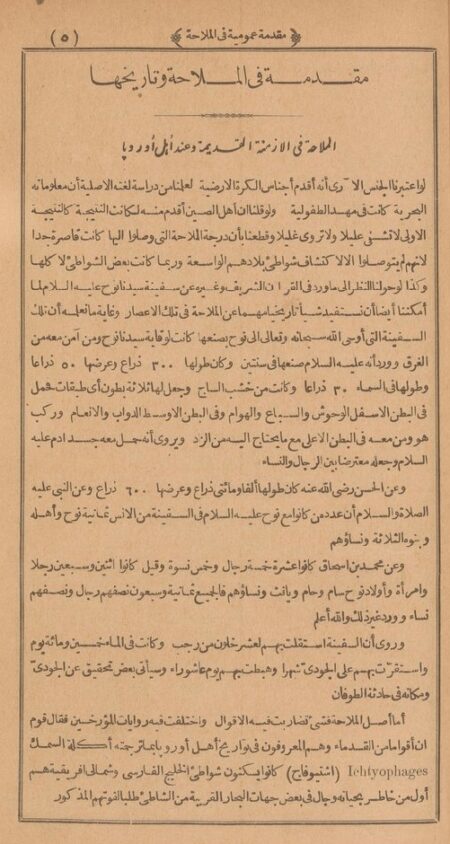 ﴿ مقدمة عمومية فى الملاحة ﴾ (٥)
مقدمة فى الملاحة وتاريخها
الملاحة فى الازمنة القديمة وعند أهل أوروپا
لو اعتبرنا الجنس الآرى أنه أقدم أجناس الكرة الارضية لعلمنا من دراسة لغته الاصلية أن معلوماته
البحرية كانت فى مهد الطفولية ولو قلنا ان أهل الصين أقدم منه لكانت النتيجة كالنتيجة
الاولى لا تشفى عليلا ولا تروى غليلا وقطعنا بأن درجة الملاحة التى وصلوا اليها كانت قاصرة جدا
لانهم لم يتوصلوا الا لاكتشاف شواطئ بلادهم الواسعة وربما كانت بعض الشواطئ لا كلها
وكذا لو حولنا النظر الى ما ورد فى القرآن الشريف وغيره عن سفينة سيدنا نوح عليه السلام لما
أمكننا أيضا أن نستفيد شيأ تاريخيا مهما عن الملاحة فى تلك الاعصار وغاية ما نعلمه أن تلك
السفينة التى أوحى الله سبحانه وتعالى الى نوح بصنعها كانت لوقاية سيدنا نوح ومن آمن معه من
الغرق وورد أنه عليه السلام صنعها فى سنتين وكان طولها ٣٠٠ ذراع وعرضها ٥٠ ذراعا
وطولها فى السماء ٣٠ ذراعا وكانت من خشب الساج وجعل لها ثلاثة بطون أى طبقات فحمل
فى البطن الاسفل الوحوش والسباع والهوام وفى البطن الاوسط الدواب والانعام وركب
هو ومن معه فى البطن الاعلى مع ما يحتاج اليه من الزاد ويروى أنه حمل معه جسد آدم عليه
السلام وجعله معترضا بين الرجال والنساء
وعن الحسن رضى الله عنه كان طولها ألفا ومائتى ذراع وعرضها ٦٠٠ ذراع وعن النبى عليه
الصلاة والسلام أن عدد من كانوا مع نوح عليه السلام فى السفينة من الانس ثمانية نوح وأهله
وبنوه الثلاثة ونساؤهم
وعن محمد بن اسحاق كانوا عشرة خمسة رجال وخمس نسوة وقيل كانوا اثنين وسبعين رجلا
وامرأة وأولاد نوح سام وحام ويافث ونساؤهم فالجميع ثمانية وسبعون نصفهم رجال ونصفهم
نساء وورد غير ذلك والله أعلم
وروى أن السفينة استقلت بهم لعشر خلون من رجب وكانت فى الماء خمسين ومائة يوم
واستقرت بهم على الجودى شهرا وهبطت بهم يوم عاشوراء وسيأتى بعض تحقيق عن الجودى
ومكانه فى حادثة الطوفان
أما أصل الملاحة فشئ تضاربت فيه الاقوال واختلفت فيه روايات المؤرخين فقال قوم
ان أقواما من القدماء وهم المعروفون فى تواريخ أهل أوروپا بما ترجمته أكلة السمك
Ichtyophages (اشتيوفاج) كانوا يسكنون شواطئ الخليج الفارسى وشمالى افريقية هم
أول من خاطر بحياته وجال فى بعض جهات البحار القريبة من الشاطئ طلبا لقوتهم المذكور